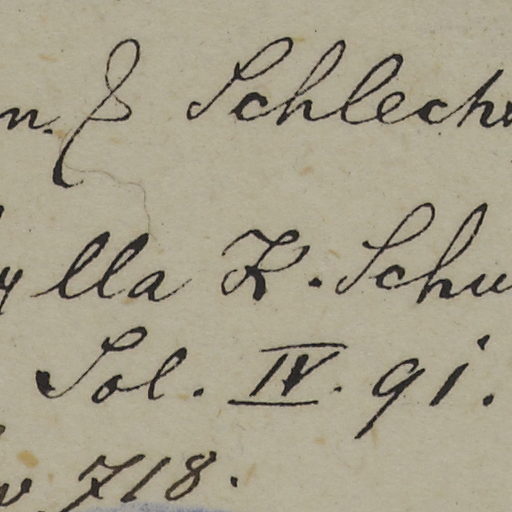 n. & Schlech
ylla K. Schu
Sol. IV. 91.
v 718.